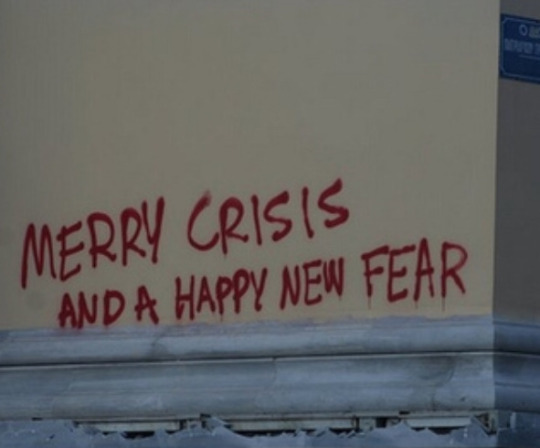 MERRY CRISIS
AND A HAPPY NEW FEAR